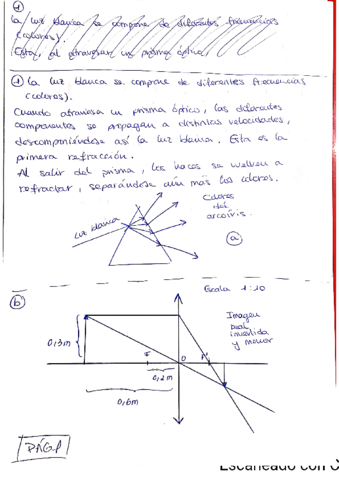 ①
La luz blanca se compone de diferentes frecuencias
(colores).
Esta, al atravesar un prisma óptico,
① La luz blanca se compone de diferentes frecuencias
(colores).
Cuando atraviesa un prisma óptico, las diferentes
componentes se propagan a distintas velocidades,
descomponiéndose así la luz blanca. Esta es la
primera refracción.
Al salir del prisma, los haces se vuelven a
refractar, separándose aún más los colores.
luz blanca
Colores
del
arcoíris.
ⓐ
ⓑ
Escala 1:10
Imagen
real,
invertida
y menor
0,3m
F
O
F'
0,2m
0,6m
PÁG 1
Escaneado con